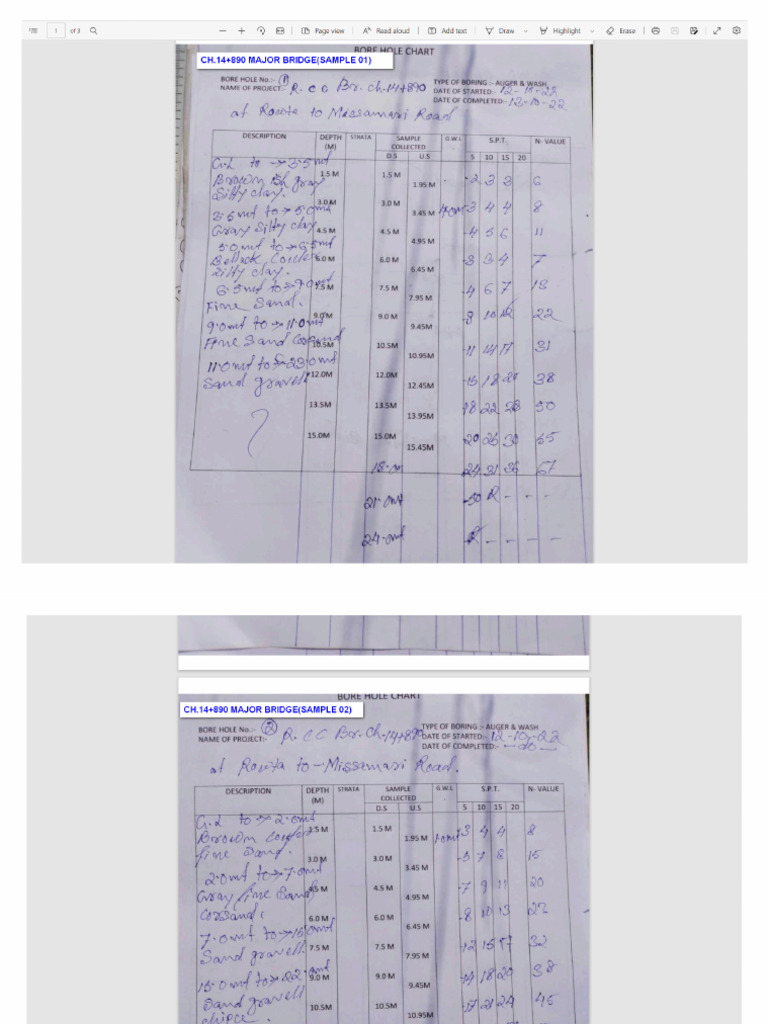 1 of 3 Page view Read aloud Add text Draw Highlight Erase
BORE HOLE CHART
CH.14+890 MAJOR BRIDGE(SAMPLE 01)
BORE HOLE No.:- 1 TYPE OF BORING :- AUGER & WASH
NAME OF PROJECT:- R.CC Br.Ch-14+890 DATE OF STARTED:- 12-10-22
DATE OF COMPLETED:- 13-10-22
at Rowta to Missamari Road
DESCRIPTION DEPTH (M) STRATA SAMPLE COLLECTED G.W.L S.P.T. N- VALUE
D.S U.S 5 10 15 20
G.L to → 3.5mt
Brown Bh gray 1.5 M 1.5 M 1.95 M 2 3 3 6
Silty clay.
3.5mt to → 5.0mt 3.0 M 3.0 M 3.45 M 3 4 4 8
Gray Silty clay 4.5 M 4.5 M 4.95 M 4 5 6 11
5.0mt to → 6.5mt
6.0 M 6.0 M 6.45 M 3 3 4 7
Silty clay.
6.5mt to → 9.0mt 7.5 M 7.5 M 7.95 M 4 6 7 13
Fine Sand.
9.0mt to → 11.0mt 9.0 M 9.0 M 9.45M 8 10 12 22
Fine Sand 10.5M 10.5M 10.95M 11 14 17 31
11.0mt to → 23.0mt
Sand gravell 12.0M 12.0M 12.45M 15 18 20 38
13.5M 13.5M 13.95M 18 22 28 50
15.0M 15.0M 15.45M 20 25 30 55
18.0m 24 31 36 67
21.0mt 50 R - - -
24.0mt R - - - -
BORE HOLE CHART
CH.14+890 MAJOR BRIDGE(SAMPLE 02)
BORE HOLE No.:- 2 TYPE OF BORING :- AUGER & WASH
NAME OF PROJECT:- R.CC Br.Ch-14+890 DATE OF STARTED:- 12-10-22
DATE OF COMPLETED:- —do—
at Rowta to - Missamari Road.
DESCRIPTION DEPTH (M) STRATA SAMPLE COLLECTED G.W.L S.P.T. N- VALUE
D.S U.S 5 10 15 20
G.L to → 2.0mt
Brown 1.5 M 1.5 M 1.95 M 1.0mt 3 4 4 8
fine Sand.
3.0 M 3.0 M 3.45 M 5 7 8 15
2.0mt to → 7.0mt
Gray fine Sand 4.5 M 4.5 M 4.95 M 7 9 11 20
6.0 M 6.0 M 6.45 M 8 10 13 23
7.0mt to → 15.0mt
Sand gravell 7.5 M 7.5 M 7.95 M 12 15 17 32
15.0mt to → 22.0mt 9.0 M 9.0 M 9.45M 14 18 20 38
Sand gravell 10.5M 10.5M 10.95M 17 21 24 45